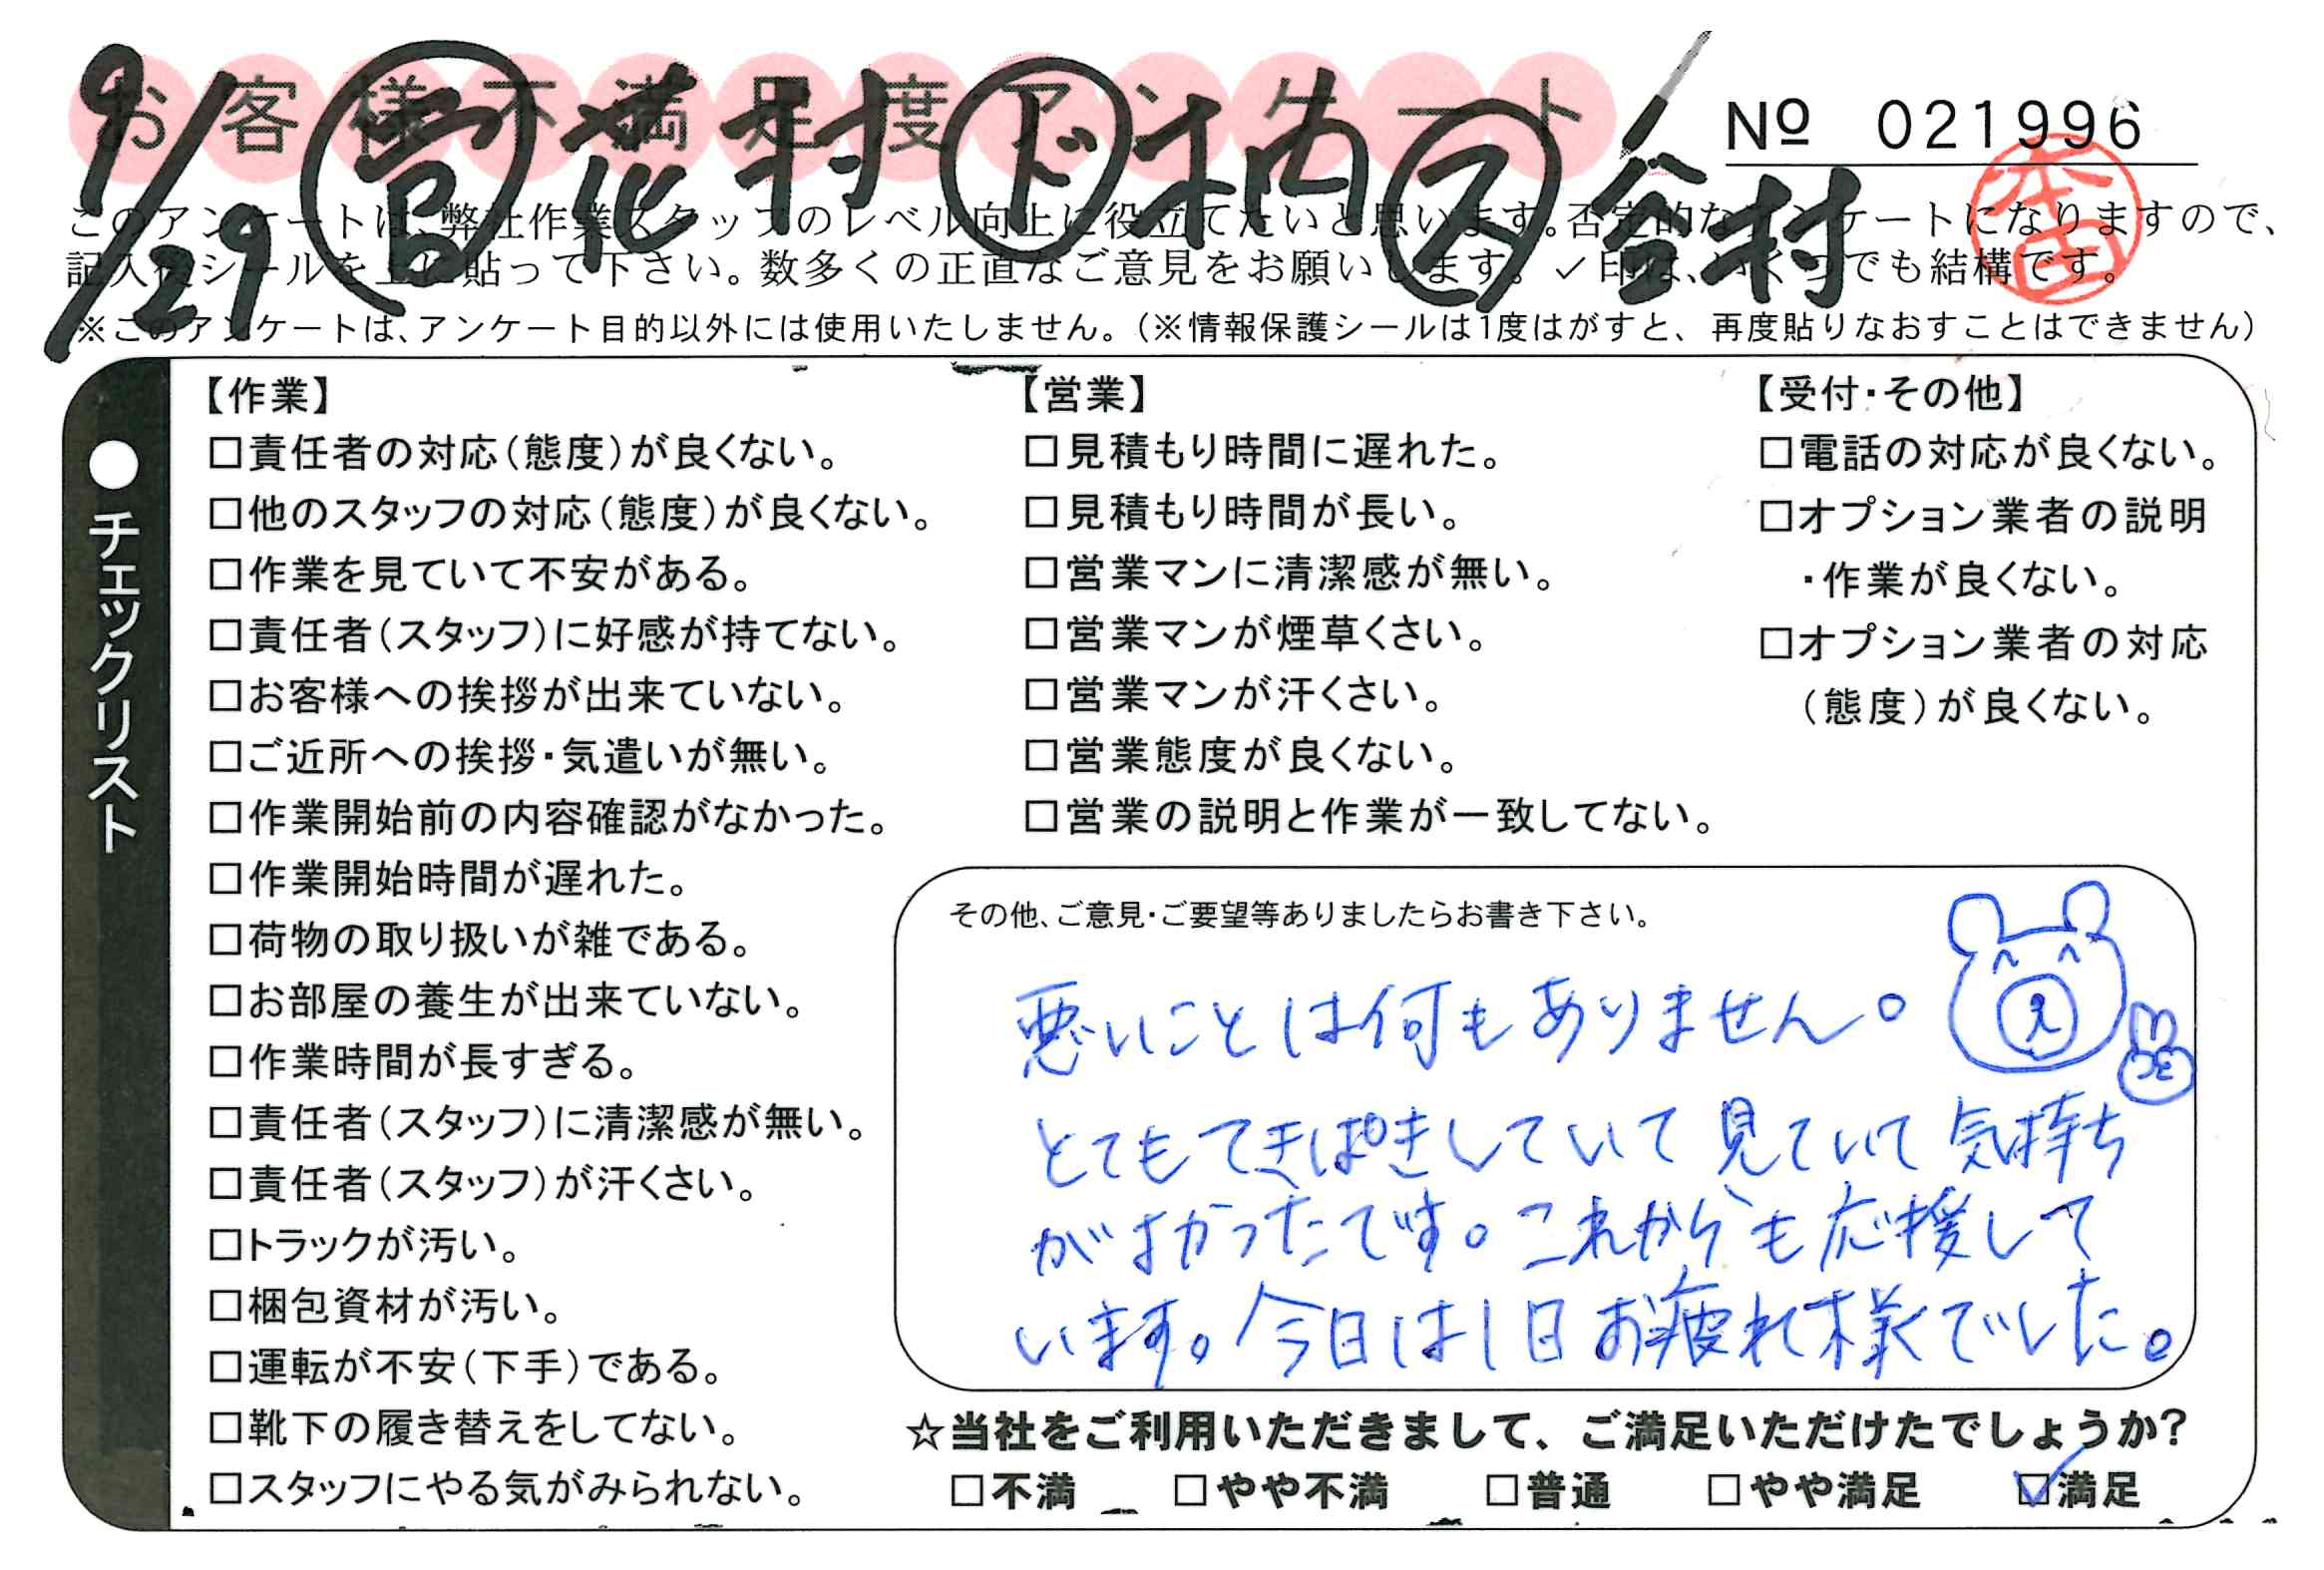 お客様不満足度アンケート
9/29 営 花村 ド 柚 ス 谷村
№ 021996
本田
このアンケートは、弊社作業スタッフのレベル向上に役立てたいと思います。否定的なアンケートになりますので、
記入後シールを上に貼って下さい。数多くの正直なご意見をお願いします。✓印は、いくつでも結構です。
※このアンケートは、アンケート目的以外には使用いたしません。（※情報保護シールは1度はがすと、再度貼りなおすことはできません）
●チェックリスト
【作業】
□責任者の対応（態度）が良くない。
□他のスタッフの対応（態度）が良くない。
□作業を見ていて不安がある。
□責任者（スタッフ）に好感が持てない。
□お客様への挨拶が出来ていない。
□ご近所への挨拶・気遣いが無い。
□作業開始前の内容確認がなかった。
□作業開始時間が遅れた。
□荷物の取り扱いが雑である。
□お部屋の養生が出来ていない。
□作業時間が長すぎる。
□責任者（スタッフ）に清潔感が無い。
□責任者（スタッフ）が汗くさい。
□トラックが汚い。
□梱包資材が汚い。
□運転が不安（下手）である。
□靴下の履き替えをしてない。
□スタッフにやる気がみられない。
【営業】
□見積もり時間に遅れた。
□見積もり時間が長い。
□営業マンに清潔感が無い。
□営業マンが煙草くさい。
□営業マンが汗くさい。
□営業態度が良くない。
□営業の説明と作業が一致してない。
【受付・その他】
□電話の対応が良くない。
□オプション業者の説明
・作業が良くない。
□オプション業者の対応
（態度）が良くない。
その他、ご意見・ご要望等ありましたらお書き下さい。
悪いことは何もありません。
とてもてきぱきしていて見ていて気持ち
がよかったです。これからも応援して
います。今日は1日お疲れ様でした。
☆当社をご利用いただきまして、ご満足いただけたでしょうか?
□不満 □やや不満 □普通 □やや満足 ☑満足